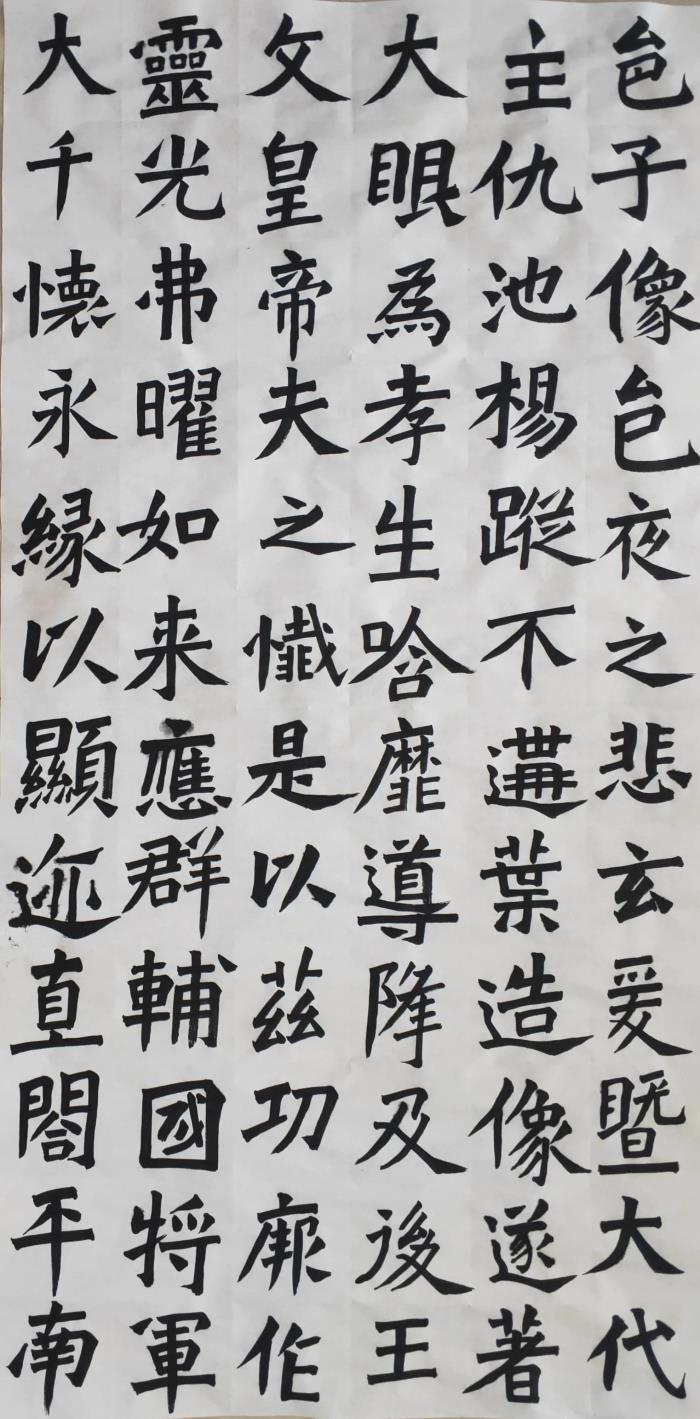 邑子像邑夜之悲玄爰暨大代
主仇池楊蹤不遘葉造像遂著
大眼為孝生唅靡導降及後王
文皇帝夫之懺是以茲功厥作
靈光弗曜如来應群輔國將軍
大千懷永緣以顯迹直閤平南